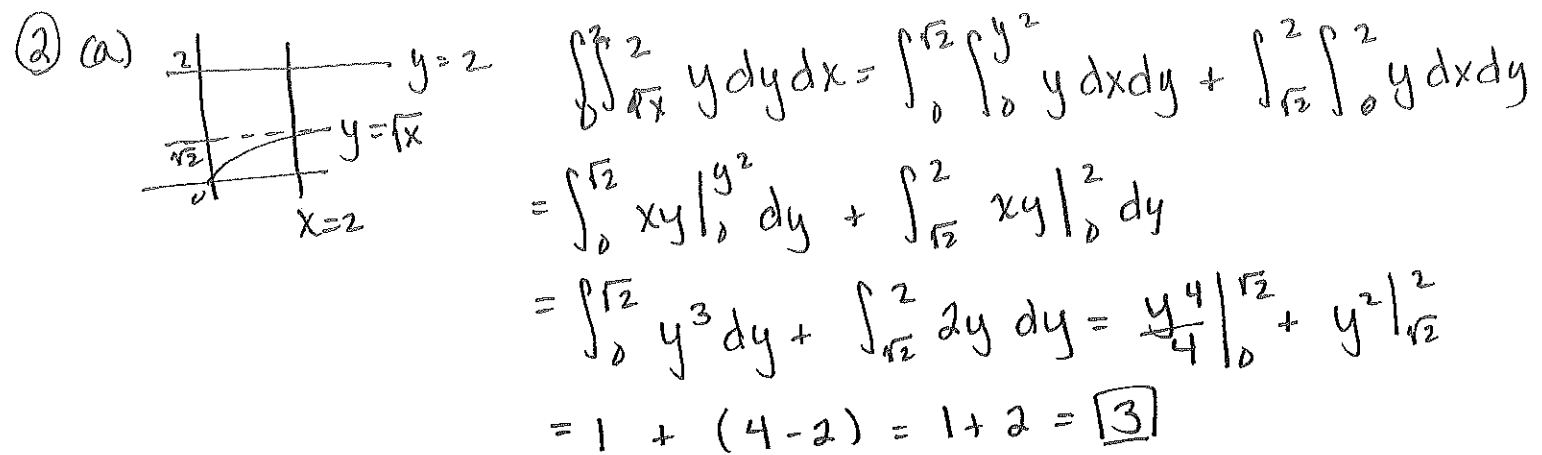 ② (a)
2 y=2
√2 y=√x
0
x=2
∫₀² ∫_√x^2 y dy dx = ∫₀^√2 ∫₀^y² y dx dy + ∫_√2^2 ∫₀² y dx dy
= ∫₀^√2 xy |₀^y² dy + ∫_√2^2 xy |₀² dy
= ∫₀^√2 y³ dy + ∫_√2^2 2y dy = y⁴/4 |₀^√2 + y² |_√2^2
= 1 + (4-2) = 1+2 = 3